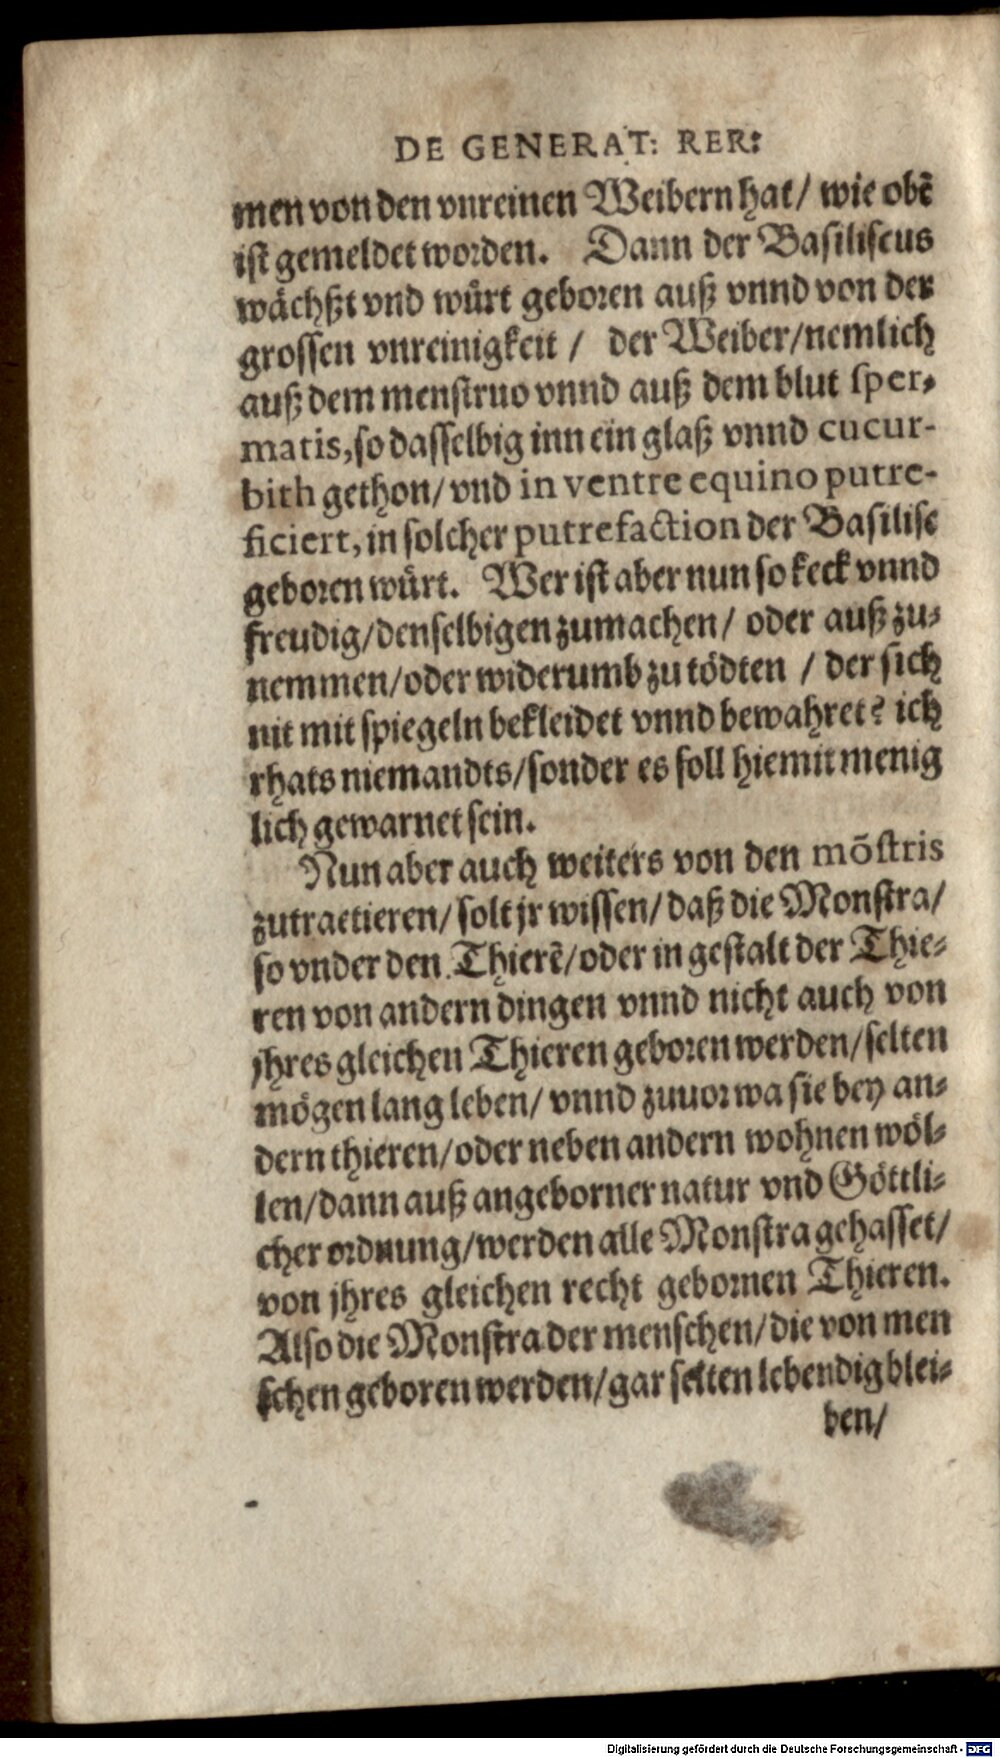 DE GENERAT: RER:
men von den vnreinen Weibern hat/ wie obẽ
ist gemeldet worden. Dann der Basiliscus
wächßt vnd wuͤrt geboren auß vnnd von der
grossen vnreinigkeit / der Weiber/nemlich
auß dem menstruo vnnd auß dem blut sper-
matis, so dasselbig inn ein glaß vnnd cucur-
bith gethon/ vnd in ventre equino putre-
ficiert, in solcher putrefaction der Basilisc
geboren wuͤrt. Wer ist aber nun so keck vnnd
freudig/denselbigen zumachen/ oder auß zu-
nemmen/oder widerumb zu tödten / der sich
nit mit spiegeln bekleidet vnnd bewahret? ich
rhats niemandts/sonder es soll hiemit menig
lich gewarnet sein.
Nun aber auch weiters von den mõstris
zutractieren/ solt jr wissen/ daß die Monstra/
so vnder den Thierẽ/oder in gestalt der Thie-
ren von andern dingen vnnd nicht auch von
jhres gleichen Thieren geboren werden/selten
mögen lang leben/ vnnd zuuor wa sie bey an-
dern thieren/oder neben andern wohnen wöl-
len/dann auß angeborner natur vnd Göttli-
cher ordnung/werden alle Monstra gehasset/
von jhres gleichen recht gebornen Thieren.
Also die Monstra der menschen/die von men
schen geboren werden/gar selten lebendig blei-
ben/
Digitalisierung gefördert durch die Deutsche Forschungsgemeinschaft - DFG